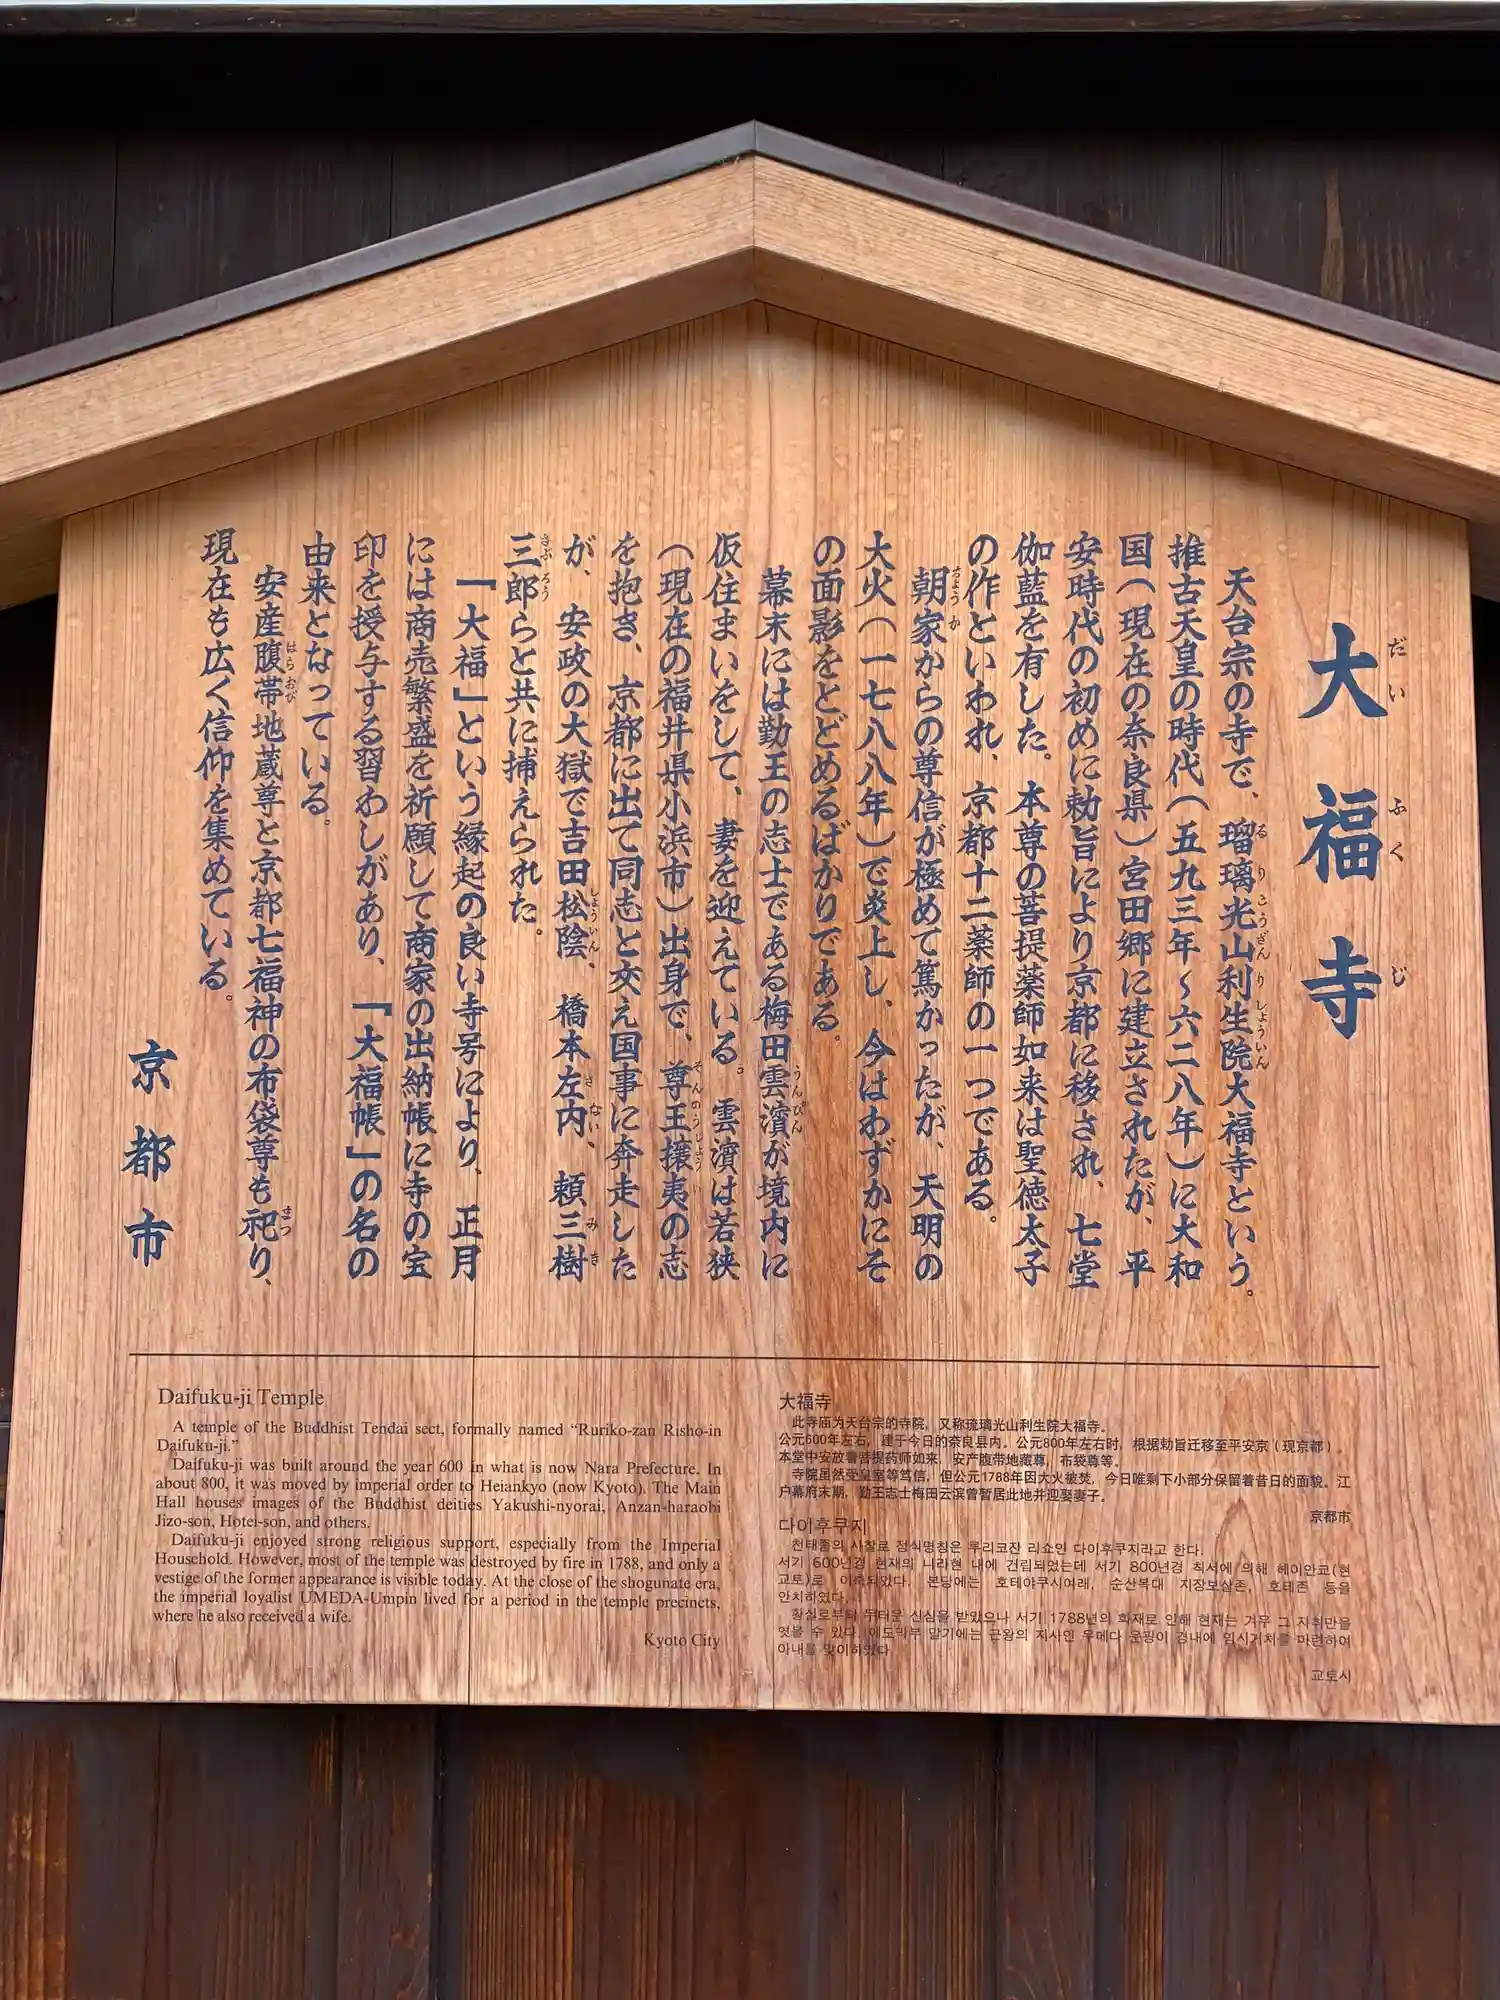 大福寺
天台宗の寺で、瑠璃光山利生院大福寺という。
推古天皇の時代（五九三年～六二八年）に大和
国（現在の奈良県）宮田郷に建立されたが、平
安時代の初めに勅旨により京都に移され、七堂
伽藍を有した。本尊の菩提薬師如来は聖徳太子
の作といわれ、京都十二薬師の一つである。
朝家からの尊信が極めて篤かったが、天明の
大火（一七八八年）で炎上し、今はわずかにそ
の面影をとどめるばかりである。
幕末には勤王の志士である梅田雲濱が境内に
仮住まいをして、妻を迎えている。雲濱は若狭
（現在の福井県小浜市）出身で、尊王攘夷の志
を抱き、京都に出て同志と交え国事に奔走した
が、安政の大獄で吉田松陰、橋本左内、頼三樹
三郎らと共に捕えられた。
「大福」という縁起の良い寺号により、正月
には商売繁盛を祈願して商家の出納帳に寺の宝
印を授与する習わしがあり、「大福帳」の名の
由来となっている。
安産腹帯地蔵尊と京都七福神の布袋尊も祀り、
現在も広く信仰を集めている。
京都市
Daifuku-ji Temple
A temple of the Buddhist Tendai sect, formally named “Ruriko-zan Risho-in
Daifuku-ji.”
Daifuku-ji was built around the year 600 in what is now Nara Prefecture. In
about 800, it was moved by imperial order to Heiankyo (now Kyoto). The Main
Hall houses images of the Buddhist deities Yakushi-nyorai, Anzan-haraobi
Jizo-son, Hotei-son, and others.
Daifuku-ji enjoyed strong religious support, especially from the Imperial
Household. However, most of the temple was destroyed by fire in 1788, and only a
vestige of the former appearance is visible today. At the close of the shogunate era,
the imperial loyalist UMEDA-Umpin lived for a period in the temple precincts,
where he also received a wife.
Kyoto City
大福寺
此寺庙为天台宗的寺院，又称琉璃光山利生院大福寺。
公元600年左右，建于今日的奈良县内。公元800年左右时，根据勅旨迁移至平安京（现京都）。
本堂中安放着菩提药师如来，安产腹带地藏尊，布袋尊等。
寺院虽然受皇室等笃信，但公元1788年因大火被焚，今日唯剩下小部分保留着昔日的面貌。江
户幕府末期，勤王志士梅田云滨曾暂居此地并迎娶妻子。
京都市
다이후쿠지
천태종의 사찰로 정식명칭은 루리코잔 리쇼인 다이후쿠지라고 한다.
서기 600년경 현재의 나라현 내에 건립되었는데 서기 800년경 칙서에 의해 헤이안쿄(현
교토)로 이축되었다. 본당에는 호테야쿠시여래, 순산복대 지장보살존, 호테존 등을
안치하였다.
황실로부터 두터운 신심을 받았으나 서기 1788년의 화재로 인해 현재는 겨우 그 자취만을
엿볼 수 있다. 에도막부 말기에는 근왕의 지사인 우메다 운핑이 경내에 임시거처를 마련하여
아내를 맞이하였다
교토시